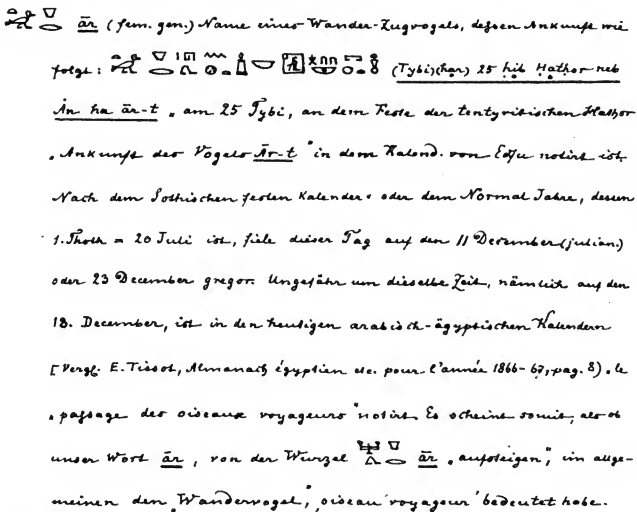 ār (fem. gen.) Name eines Wander-Zugvogels, dessen Ankunft wie
folgt: (Tybi)(har) 25 ḥib Ḥatḥor neb
Ȧn ha ār-t „am 25 Tybi, an dem Feste der tentyritischen Hathor
„Ankunft des Vogels Ār-t" in dem Kalend. von Edfu notirt ist.
Nach dem Sothischen festen Kalender oder dem Normal Jahre, dessen
1. Thoth = 20 Juli ist, fiele dieser Tag auf den 11 December (julian.)
oder 23 December gregor. Ungefähr um dieselbe Zeit, nämlich auf den
18. December, ist in den heutigen arabisch-ägyptischen Kalendern
[Vergl. E. Tissot, Almanach égyptien etc. pour l'année 1866-67, pag. 8). le
„passage des oiseaux voyageurs" notirt. Es scheint somit, als ob
unser Wort ār, von der Wurzel ār „aufsteigen", im allge-
meinen den „Wandervogel", „oiseau voyageur" bedeutet habe.